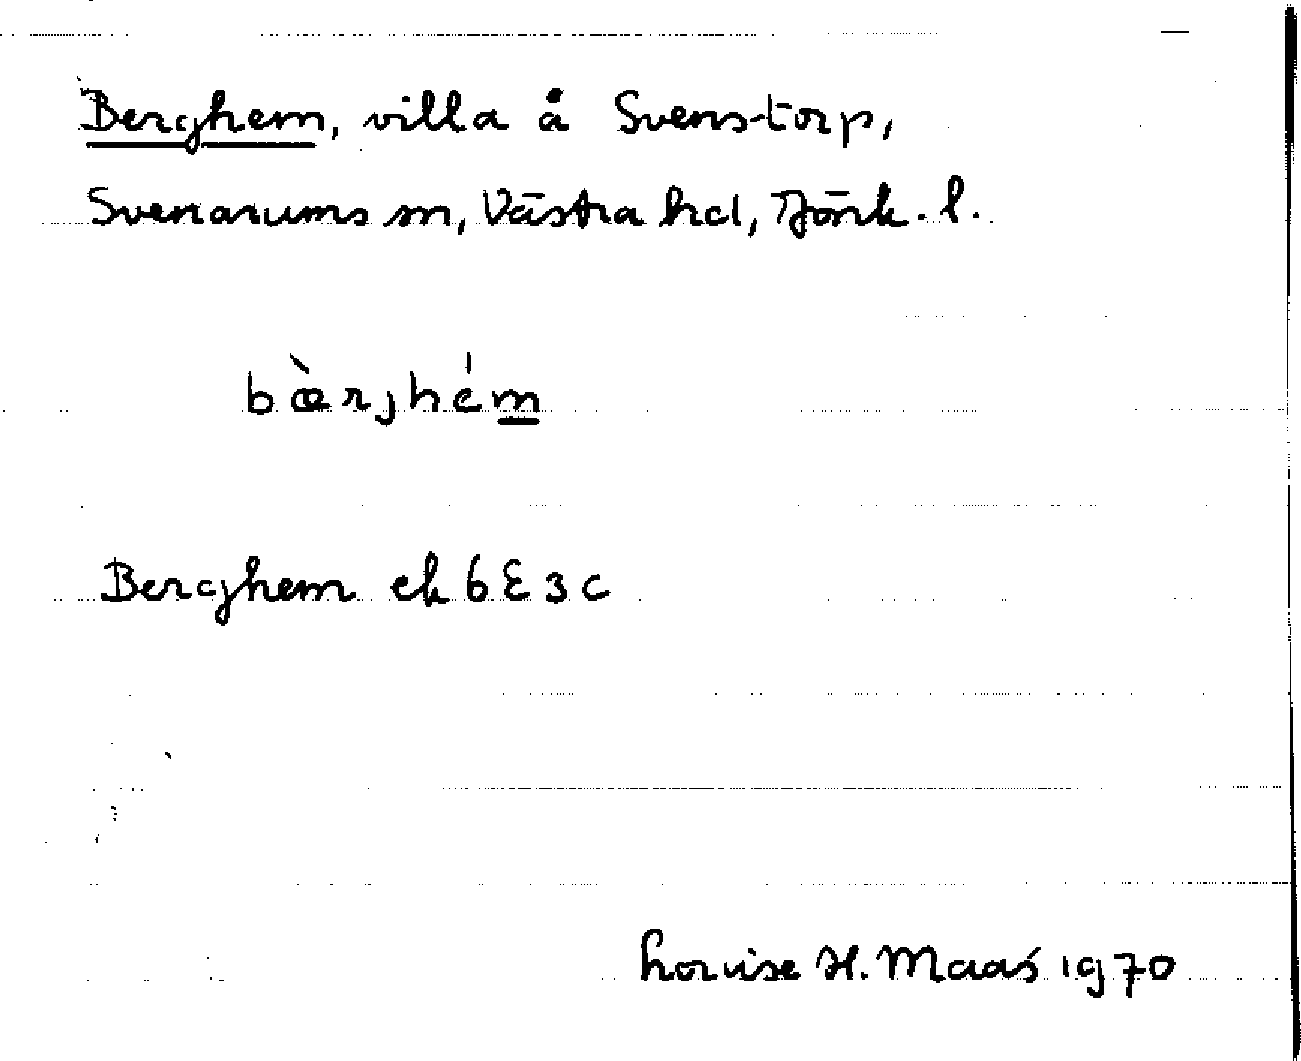 Berghem, villa å Svenstorp,
Svenarums sn, Västra hd, Jönk. l.
bæ̀rjhém
Berghem ek 6 E 3 c
Louise H. Maas 1970